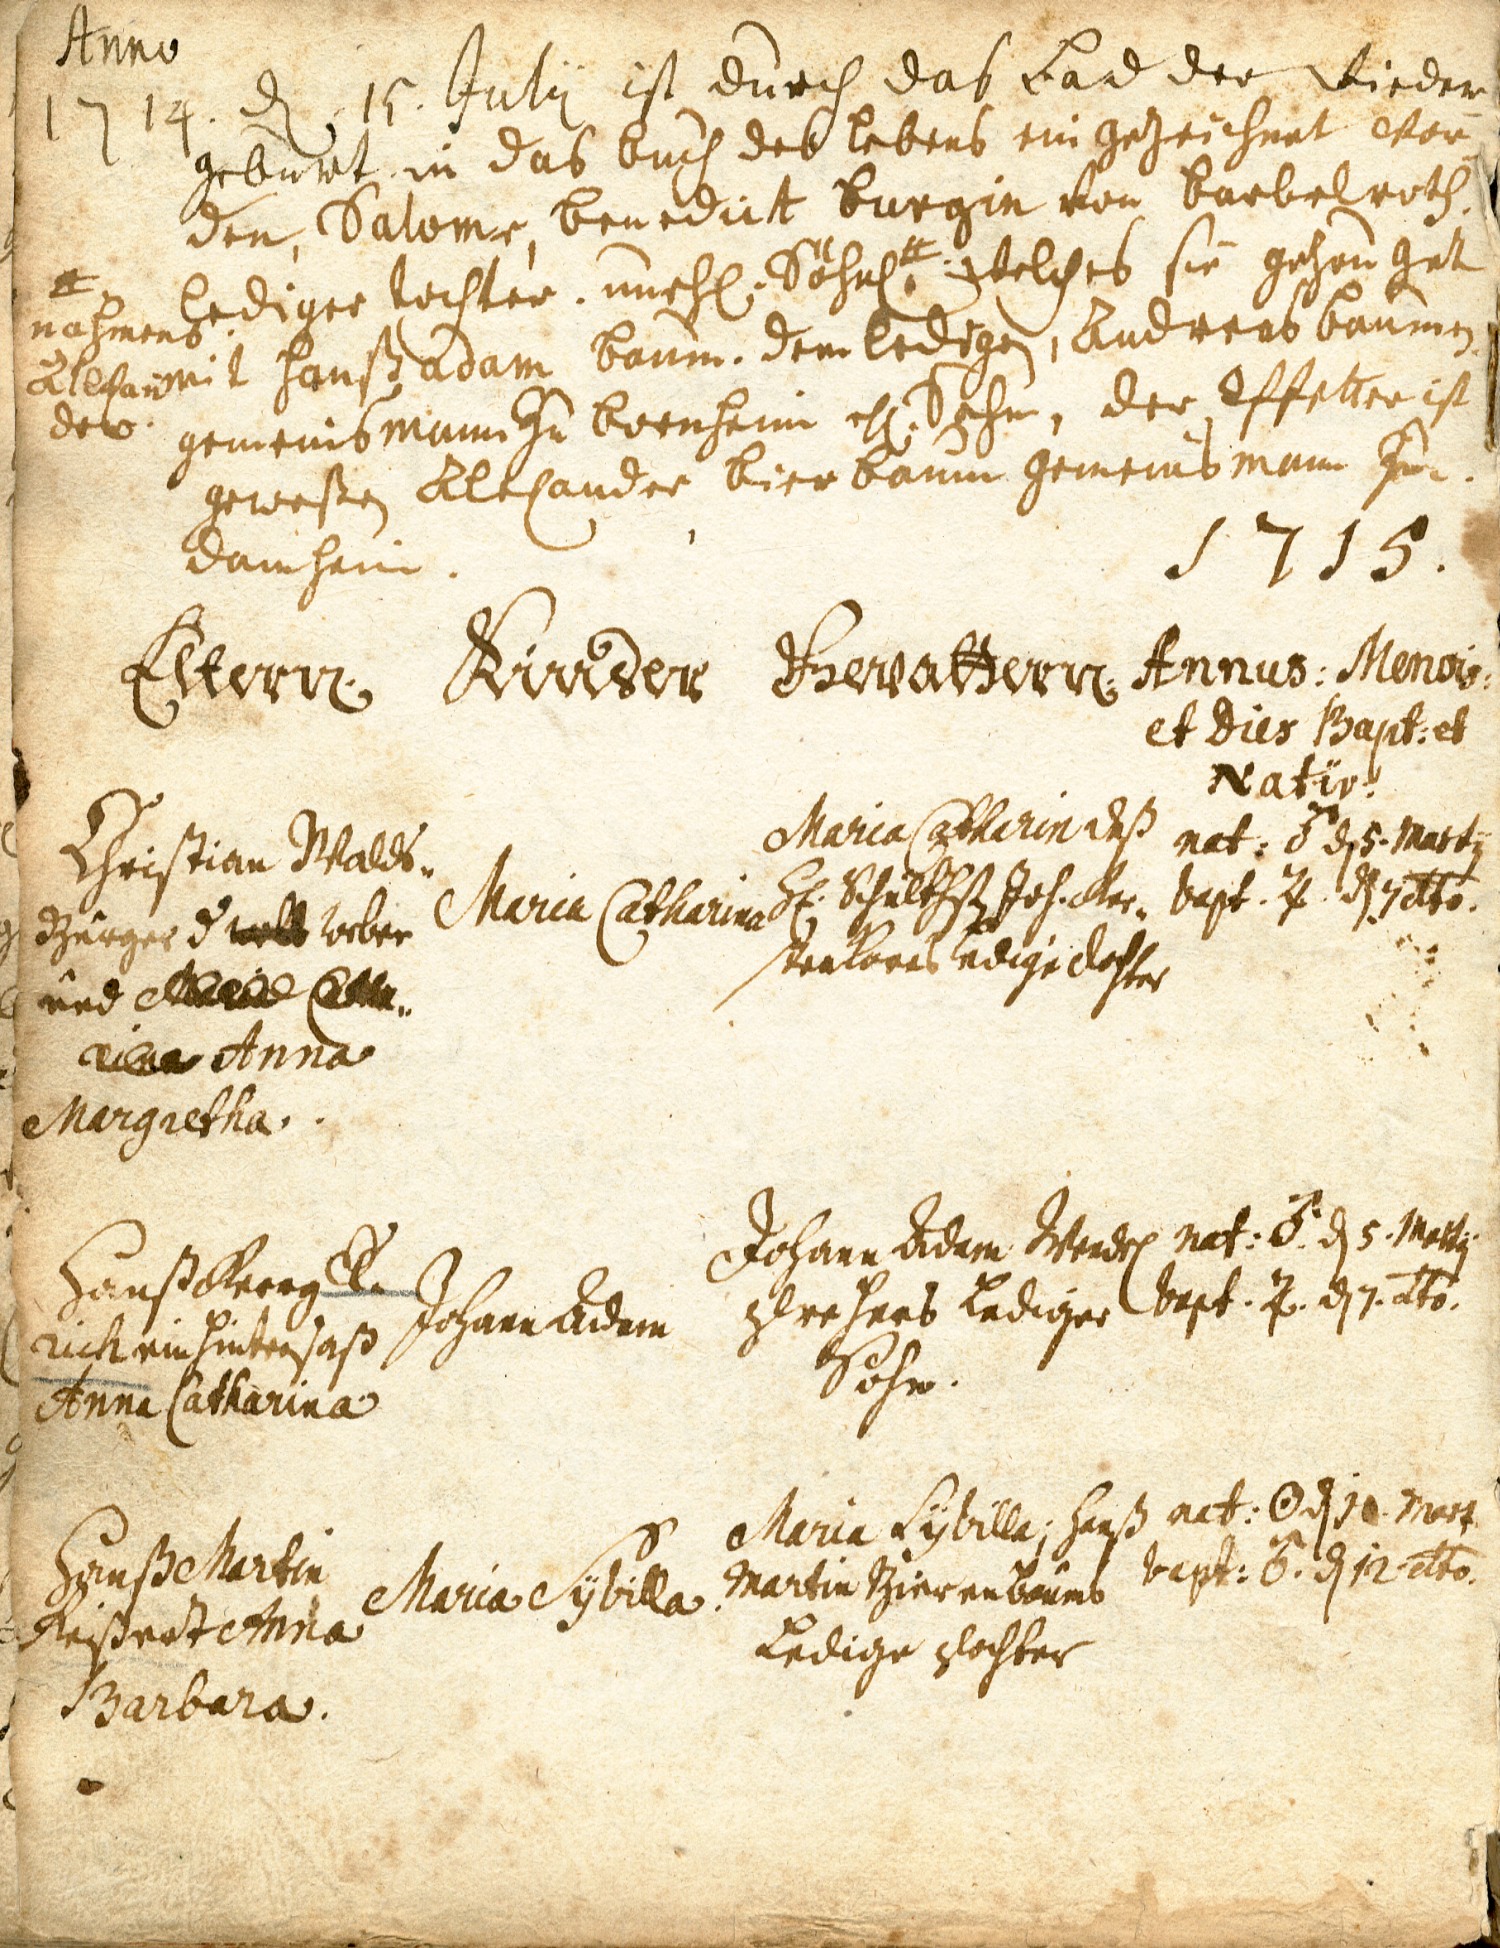 Anno
1714. d. 15. Julij ist durch das Bad der Wieder
geburt in das buch des lebens ein gezeichnet wor-
den, Salome, benedict burgin von barbelroth
lediger tochter. unehl. Söhnl. # welches sie gezeuget
# nahmens Alexander.
mit hanß adam baum. dem ledigen, Andreas baumen
gemeinsmann zu bornheim ehl. Sohn, der Pfetter ist
geweßen Alexander bierbaum gemeinsmann zu
damheim.
1715.
Eltern. Kinder Gevattern. Annus: Mensis:
et Dies Bapt: et
Nativ:
Christian Walds-
Bürger d weber
und
Anna
Margretha.
Maria Catharina
Maria Catharin deß
H. Schultheß Joh.
ledige dochter
nat: ♂ d 5. Martij
bapt. ♃. d. 7 dto.
Hanß Georg
rich ein hintersaß
Anna Catharina
Johann Adam
Johann Adam Wendel
Lediger
Sohn.
nat: ♂. d 5. Martij
bapt. ♃. d 7. dto.
Hanß Martin
Anna
Barbara.
Maria Sÿbilla.
Maria Sÿbilla, Hanß
Martin Bierenbaums
Ledige Dochter
nat: ☉ d 10. Mart.
bapt: ♂. d 12 dto.